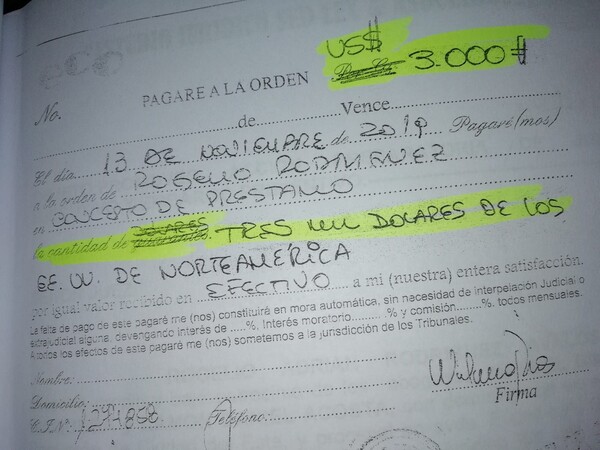 US$
3.000#
PAGARE A LA ORDEN
No. de Vence
El día 13 DE NOVIEMBRE de 2019 Pagaré (mos)
a la orden de ROGELIO RODRIGUEZ
en CONCEPTO DE PRESTAMO
la cantidad de TRES MIL DOLARES DE LOS
EE. UU. DE NORTEAMÉRICA
por igual valor recibido en EFECTIVO a mi (nuestra) entera satisfacción.
La falta de pago de este pagaré me (nos) constituirá en mora automática, sin necesidad de interpelación Judicial o
extrajudicial alguna, devengando interés de .....%, Interés moratorio..........% y comisión........%. todos mensuales.
A todos los efectos de este pagaré me (nos) sometemos a la jurisdicción de los Tribunales.
Nombre:
Domicilio:
C.I.Nº: 1294858 Teléfono:
Firma